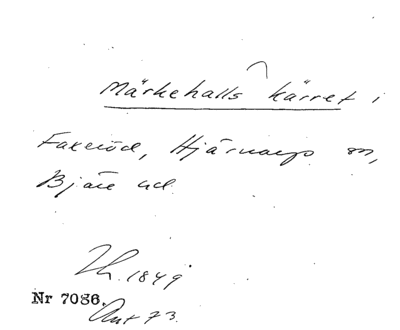 Märkehalls kärret i
Faxeröd, Hjärnarps sn,
Bjäre hd
Th. 1849
Nr 7086.
Ant 73.